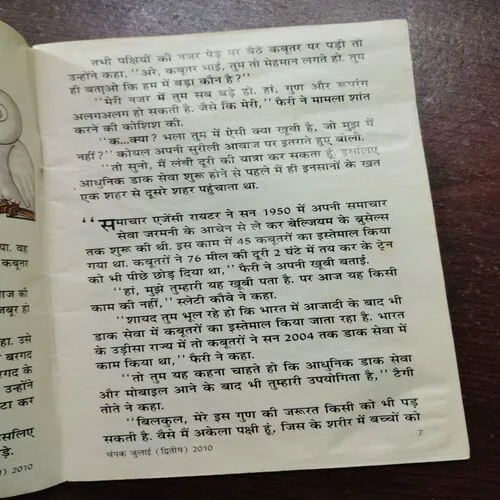 तभी पक्षियों की नजर पेड़ पर बैठे कबूतर पर पड़ी तो
उन्होंने कहा, ''अरे, कबूतर भाई, तुम तो मेहमान लगते हो. तुम
ही बताओ कि हम में बड़ा कौन है?''
''मेरी नजर में तुम सब बड़े हो. हां, गुण और रूपरंग
अलगअलग हो सकती है. जैसे कि मेरी,'' फैरी ने मामला शांत
करने की कोशिश की.
''क...क्या? भला तुम में ऐसी क्या खूबी है, जो मुझ में
नहीं?'' कोयल अपनी सुरीली आवाज पर इतराते हुए बोली.
''तो सुनो, मैं लंबी दूरी की यात्रा कर सकता हूं. इसलिए
आधुनिक डाक सेवा शुरू होने से पहले में ही इनसानों के खत
एक शहर से दूसरे शहर पहुंचाता था.
''समाचार एजेंसी रायटर ने सन 1950 में अपनी समाचार
सेवा जरमनी के आचेन से ले कर बेल्जियम के ब्रूसेल्स
तक शुरू की थी. इस काम में 45 कबूतरों का इस्तेमाल किया
गया था. कबूतरों ने 76 मील की दूरी 2 घंटे में तय कर के ट्रेन
को भी पीछे छोड़ दिया था,'' फैरी ने अपनी खूबी बताई.
''हां, मुझे तुम्हारी यह खूबी पता है. पर आज यह किसी
काम की नहीं,'' स्लेटी कौवे ने कहा.
''शायद तुम भूल रहे हो कि भारत में आजादी के बाद भी
डाक सेवा में कबूतरों का इस्तेमाल किया जाता रहा है. भारत
के उड़ीसा राज्य में तो कबूतरों ने सन 2004 तक डाक सेवा में
काम किया था,'' फैरी ने कहा.
''तो तुम यह कहना चाहते हो कि आधुनिक डाक सेवा
और मोबाइल आने के बाद भी तुम्हारी उपयोगिता है,'' टैगी
तोते ने कहा.
''बिलकुल, मेरे इस गुण की जरूरत किसी को भी पड़
सकती है. वैसे मैं अकेला पक्षी हूं, जिस के शरीर में बच्चों को
चंपक जुलाई (द्वितीय) 2010
7
या. वह
कबूतर
ाज की
जबूर हो
हा. उसे
बरगद
गद के
उन्होंने
टा कर
सलिए
ड़े.
) 2010